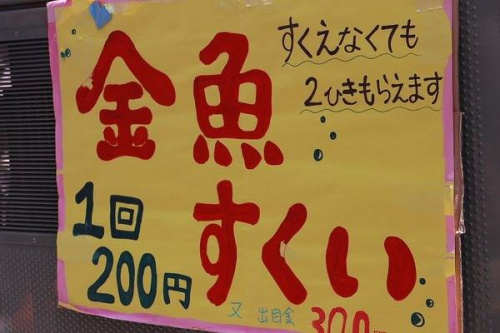 金魚
すくい
すくえなくても
2ひきもらえます
1回
200円
又 出目金 300